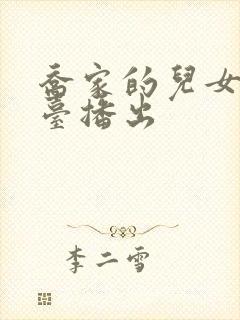 喬家的兒女
臺播出
李二雪